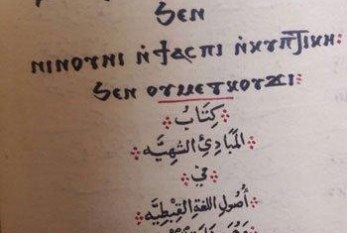 ϧⲉⲛ
ⲛⲓⲛⲟⲩⲛⲓ ⲛ̀ϯⲁⲥⲡⲓ ⲛ̀ⲕⲩⲡⲧⲓⲕⲏ:
ϧⲉⲛ ⲟⲩⲙⲉⲧⲕⲟⲩϫⲓ:
كِتَابُ
المَبَادِئِ الشَهِيَّه
فِي
أُصُولِ اللُغَةِ القِبْطِيَّه